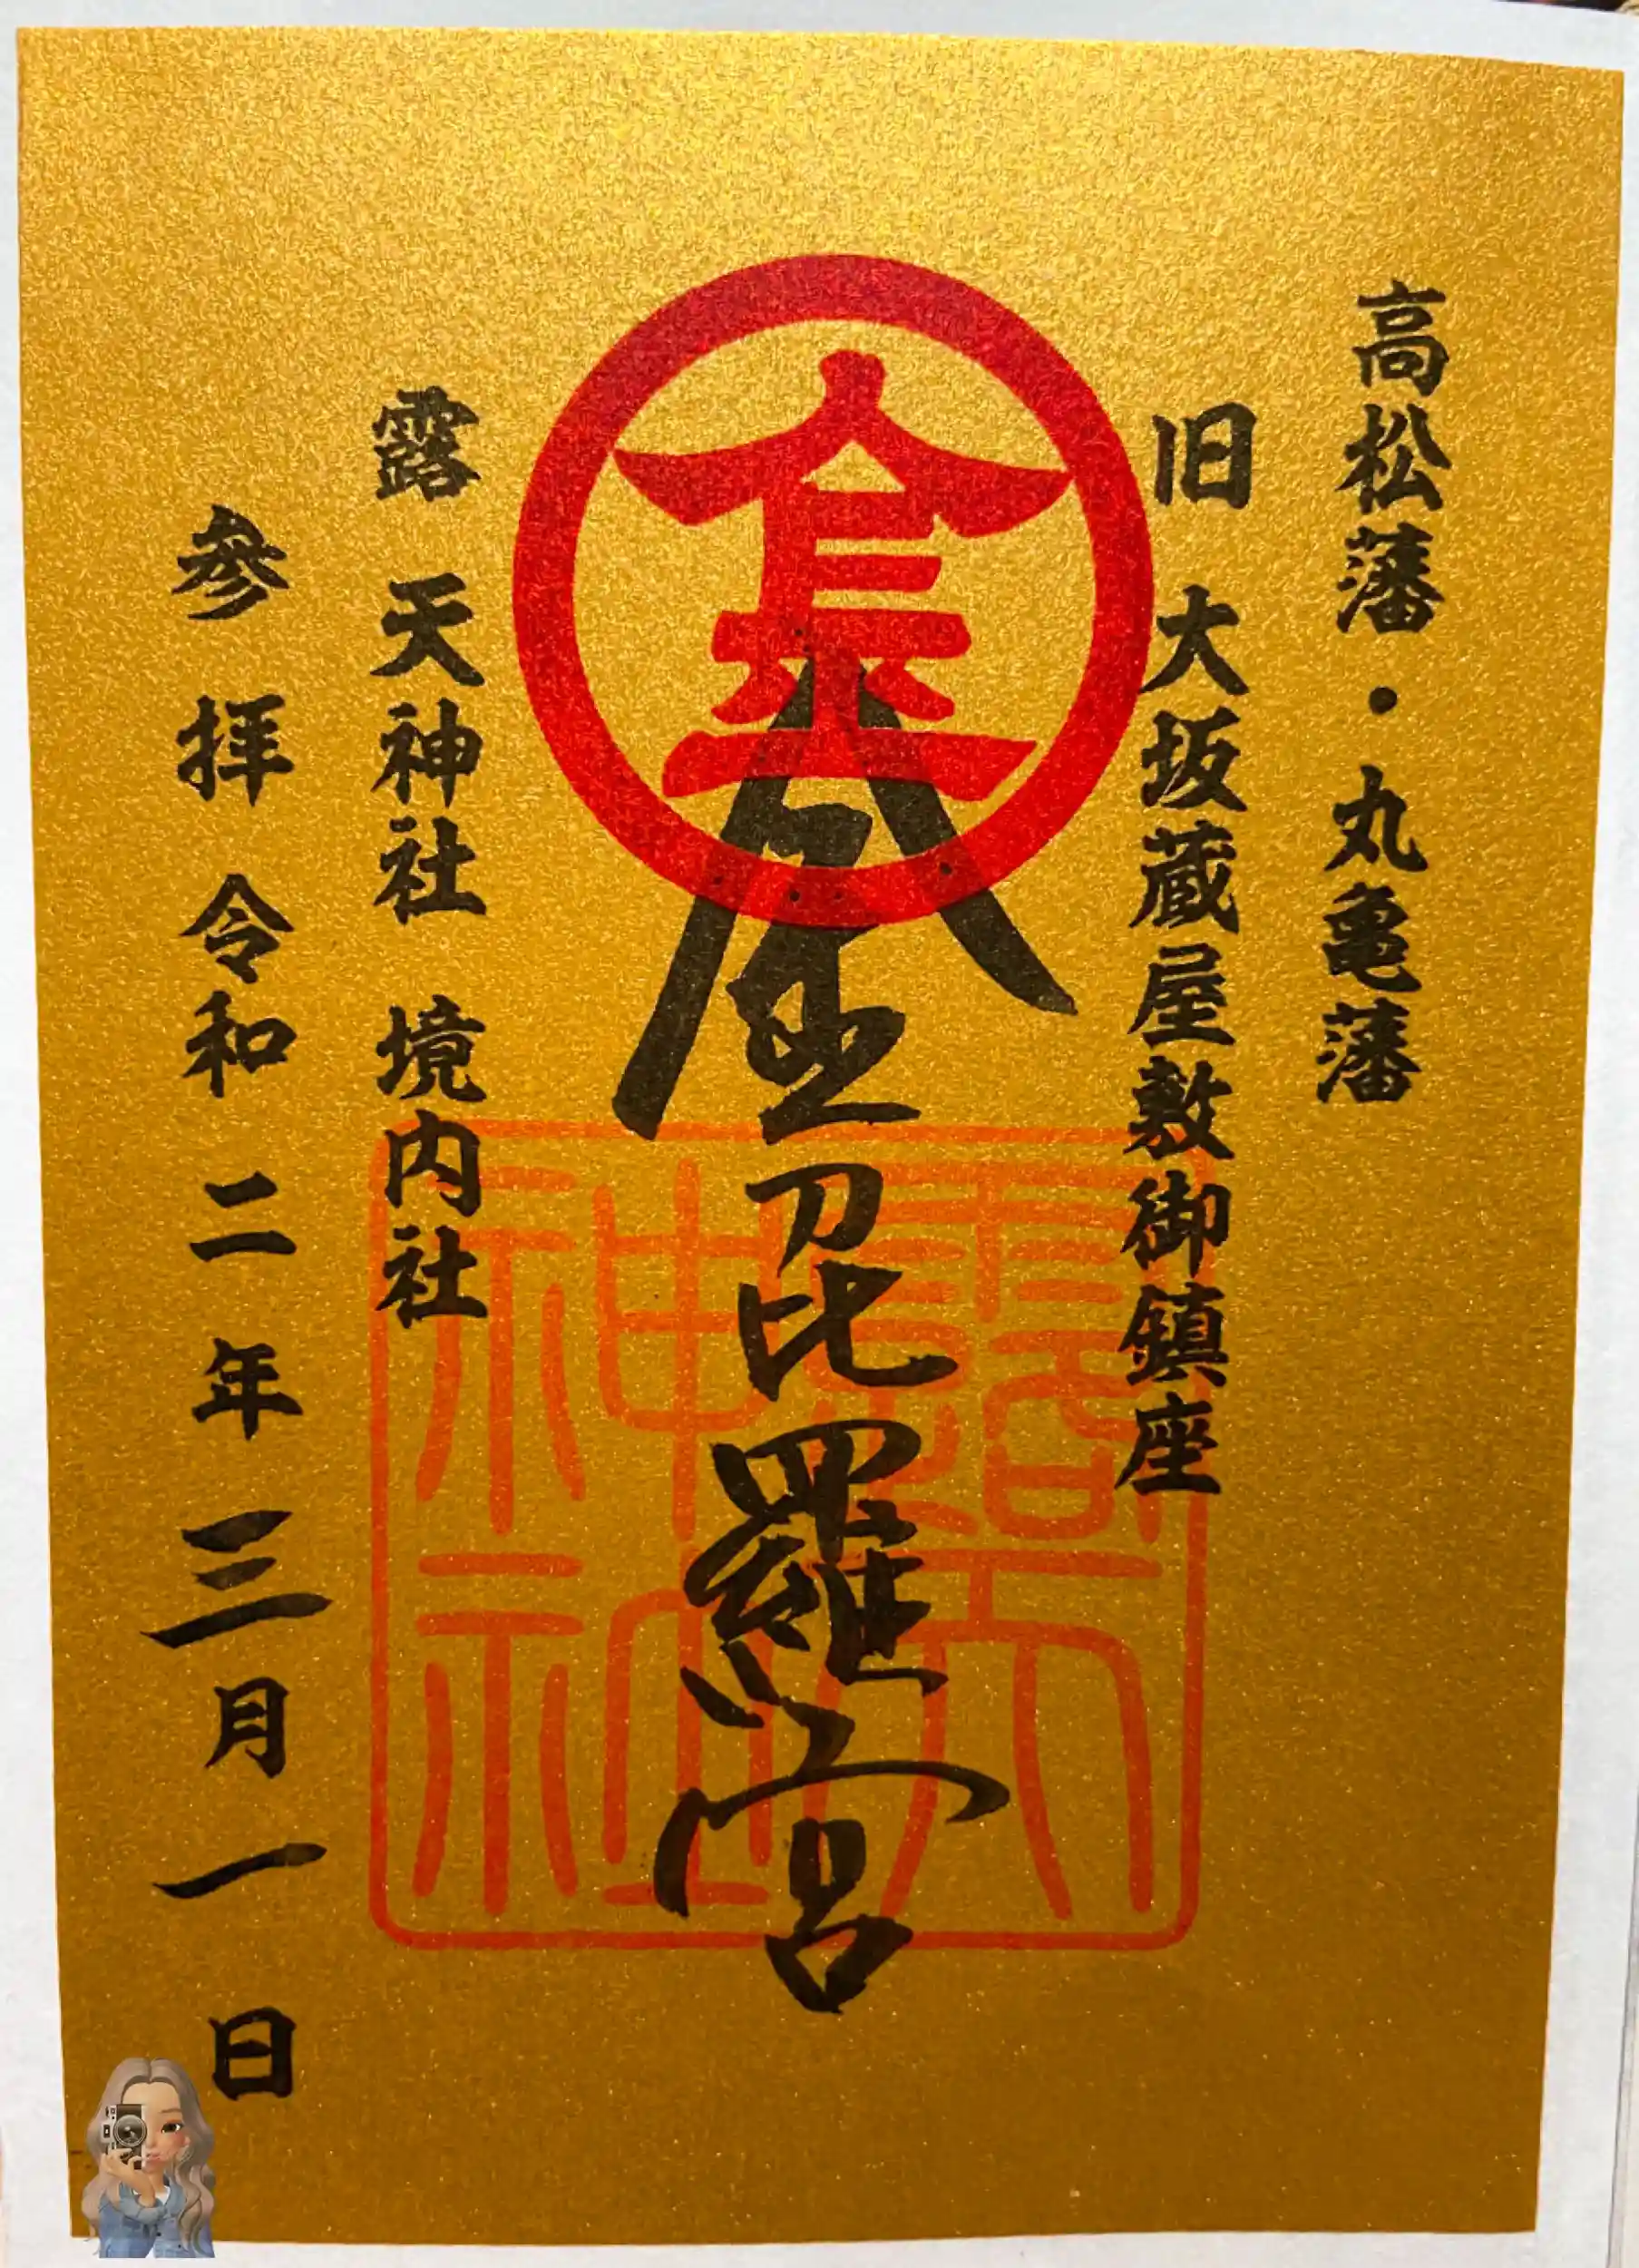 高松藩・丸亀藩
旧 大坂蔵屋敷御鎮座
金
金刀比羅宮
露天
神社
露 天神社 境内社
参拝 令和二年三月一日